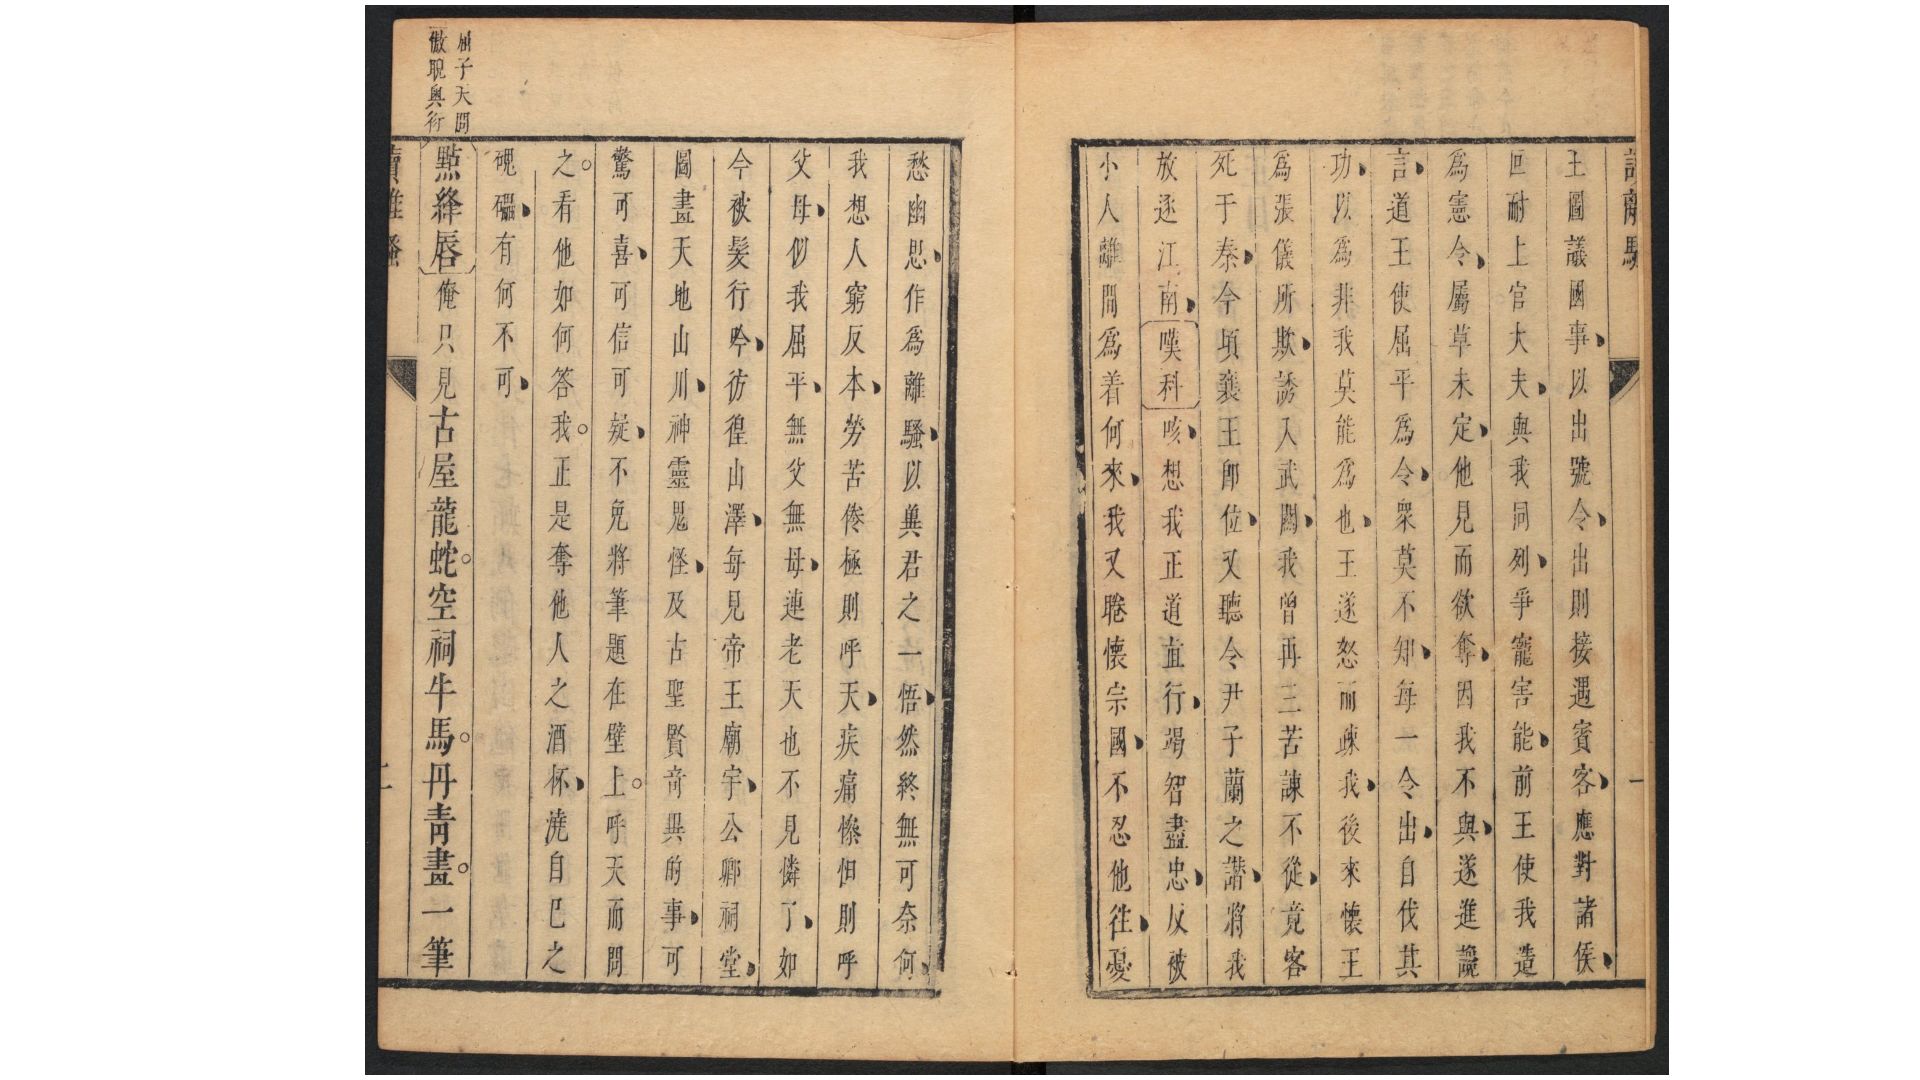 讀離騷
一
王圖議國事以出號令出則接遇賓客應對諸侯
叵耐上官大夫與我同列爭寵害能前王使我造
爲憲令屬草未定他見而欲奪因我不與遂進讒
言道王使屈平爲令衆莫不知每一令出自伐其
功以爲非我莫能爲也王遂怒而疎我後來懷王
爲張儀所欺誘入武關我曾再三苦諫不從竟客
死于秦今頃襄王卽位又聽令尹子蘭之譖將我
放逐江南嘆科咳想我正道直行竭智盡忠反被
小人離間爲着何來我又睠懷宗國不忍他徃憂
愁幽思作爲離騷以兾君之一悟然終無可奈何
我想人窮反本勞苦倦極則呼天疾痛慘怛則呼
父母似我屈平無父無母連老天也不見憐了如
今被髮行吟彷徨山澤每見帝王廟宇公卿祠堂
圖畫天地山川神靈鬼怪及古聖賢奇異的事可
驚可喜可信可疑不免將筆題在壁上呼天而問
之看他如何答我正是奪他人之酒杯澆自己之
磈礧有何不可
點絳唇俺只見古屋龍蛇空祠牛馬丹青畫一筆
子天問
傲睨與衍
讀離騷
二